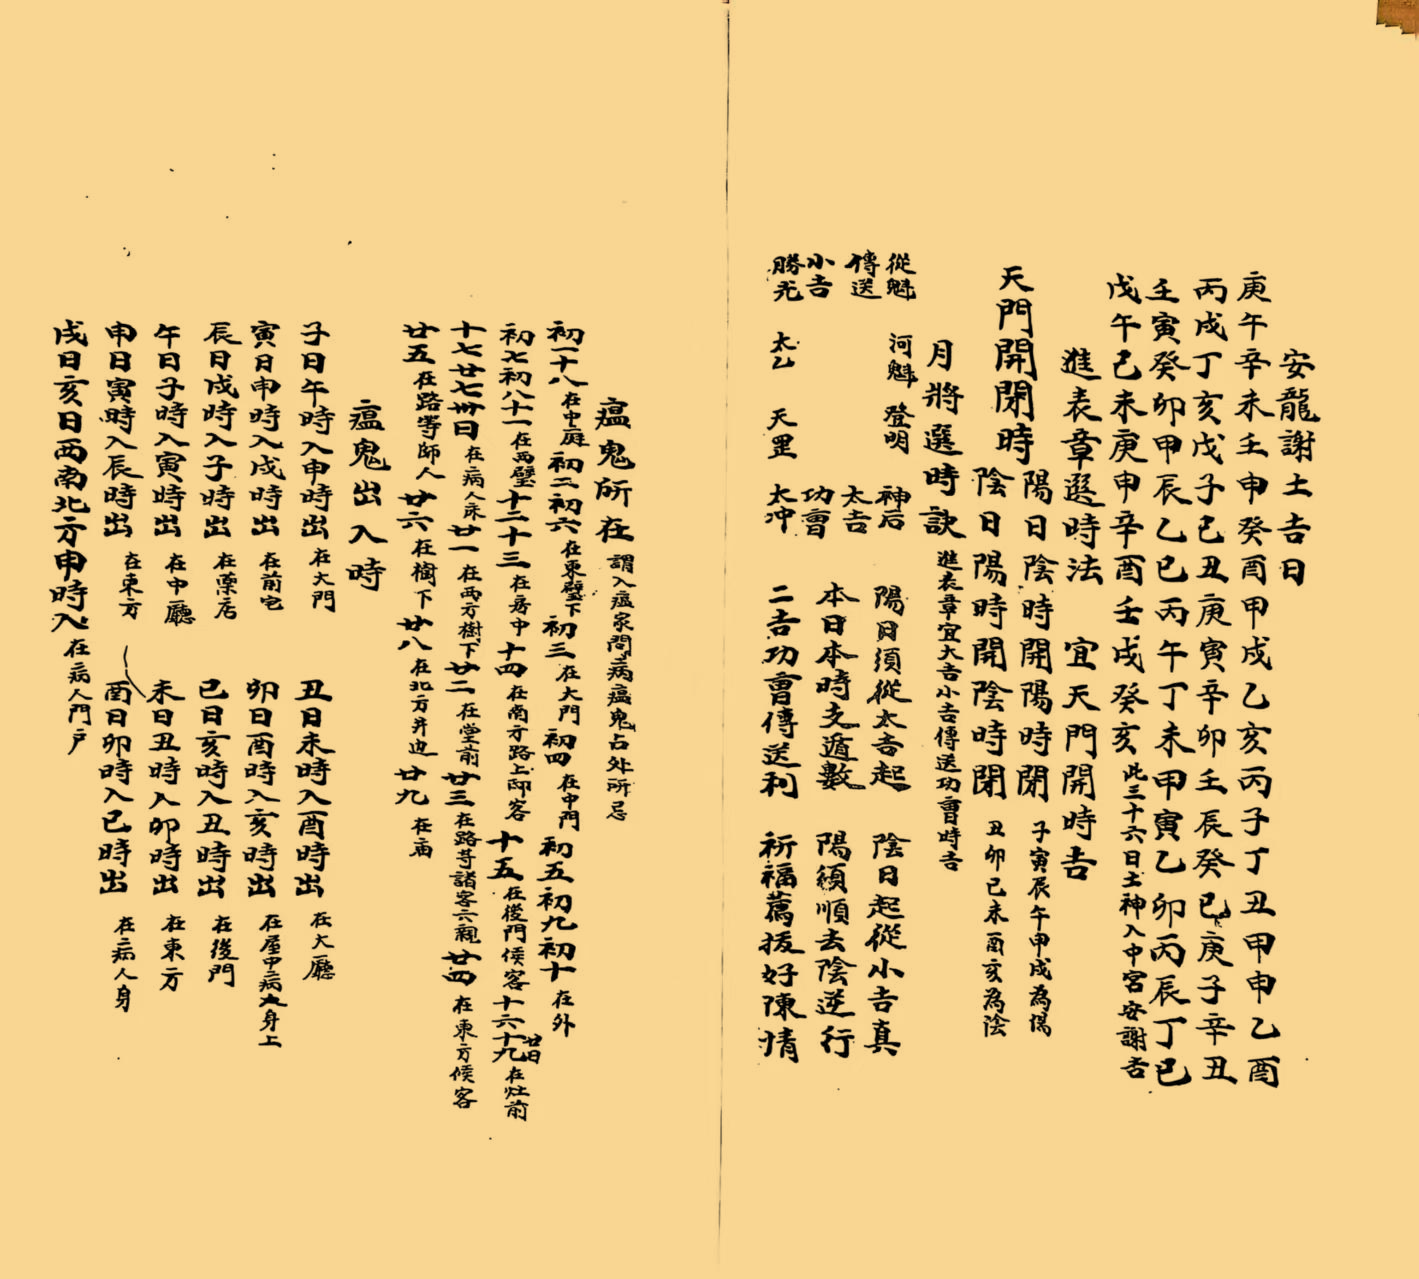 安龍謝土吉日
庚午辛未壬申癸酉甲戌乙亥丙子丁丑甲申乙酉
丙戌丁亥戊子己丑庚寅辛卯壬辰癸巳庚子辛丑
壬寅癸卯甲辰乙巳丙午丁未甲寅乙卯丙辰丁巳
戊午己未庚申辛酉壬戌癸亥 此三十六日土神入中宮安謝吉
進表章選時法 宜天門開時吉
天門開閉時 陽日陰時開陽時閉 子寅辰午申戌為陽
陰日陽時開陰時閉 丑卯巳未酉亥為陰
月將選時訣 進表章宜大吉小吉傳送功曹時吉
從魁 河魁 登明 神后 陽日須從太吉起 陰日起從小吉真
傳送 太吉 本日本時支遁數 陽須順去陰逆行
小吉 功曹
勝光 太乙 天罡 太冲 二吉功曹傳送利 祈福薦拔好陳情
瘟鬼所在 謂入瘟家問病瘟鬼占外所忌
初一十八 在中庭 初二初六 在東壁下 初三 在大門 初四 在中門 初五初九初十 在外
初七初八十一 在西壁 十二十三 在房中 十四 在南方路上邸客 十五 在後門侯客 十六十九廿日 在灶前
十七廿七卅日 在病人床 廿一 在西方樹下 廿二 在堂前 廿三 在路等諸客六親 廿四 在東方候客
廿五 在路等師人 廿六 在樹下 廿八 在北方井边 廿九 在庙
瘟鬼出入時
子日午時入申時出 在大門 丑日未時入酉時出 在大廳
寅日申時入戌時出 在前宅 卯日酉時入亥時出 在屋中病人身上
辰日戌時入子時出 在藥店 巳日亥時入丑時出 在後門
午日子時入寅時出 在中廳 未日丑時入卯時出 在東方
申日寅時入辰時出 在東方 酉日卯時入巳時出 在病人身
戌日亥日西南北方申時入 在病人門户